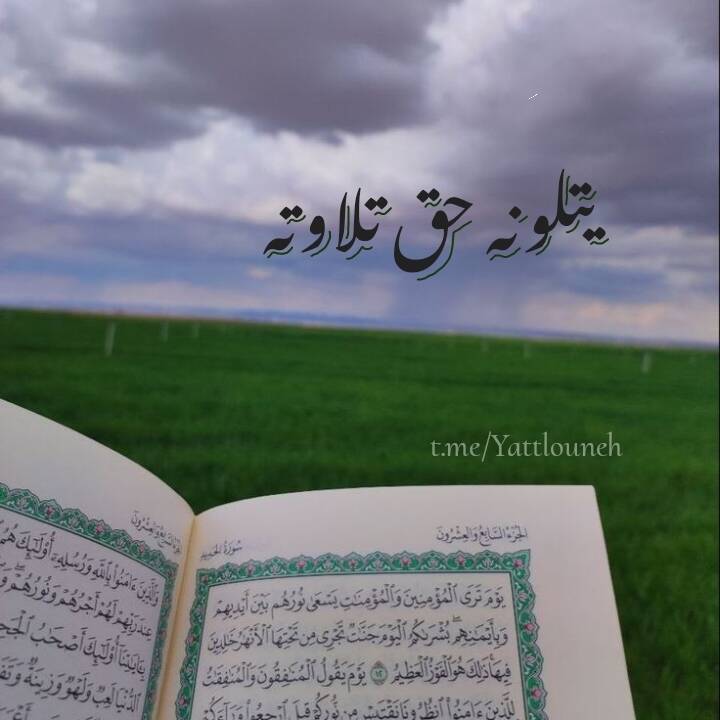 يتلونه حق تلاوته
t.me/Yattlouneh
الجزء السابع والعشرون
سورة الحديد
يَوْمَ تَرَى ٱلْمُؤْمِنِينَ وَٱلْمُؤْمِنَٰتِ يَسْعَىٰ نُورُهُم بَيْنَ أَيْدِيهِمْ
وَبِأَيْمَٰنِهِم بُشْرَىٰكُمُ ٱلْيَوْمَ جَنَّٰتٌ تَجْرِى مِن تَحْتِهَا ٱلْأَنْهَٰرُ خَٰلِدِينَ
فِيهَا ذَٰلِكَ هُوَ ٱلْفَوْزُ ٱلْعَظِيمُ ١٢ يَوْمَ يَقُولُ ٱلْمُنَٰفِقُونَ وَٱلْمُنَٰفِقَٰتُ
لِلَّذِينَ ءَامَنُوا۟ ٱنظُرُونَا نَقْتَبِسْ مِن نُّورِكُمْ قِيلَ ٱرْجِعُوا۟ وَرَآءَكُمْ
والعشرون
وَٱلَّذِينَ ءَامَنُوا۟ بِٱللَّهِ وَرُسُلِهِۦٓ أُو۟لَٰٓئِكَ هُمُ
عِندَ رَبِّهِمْ لَهُمْ أَجْرُهُمْ وَنُورُهُمْ
بِـَٔايَٰتِنَآ أُو۟لَٰٓئِكَ أَصْحَٰبُ
ٱلدُّنْيَا لَعِبٌ وَلَهْوٌ وَزِينَةٌ